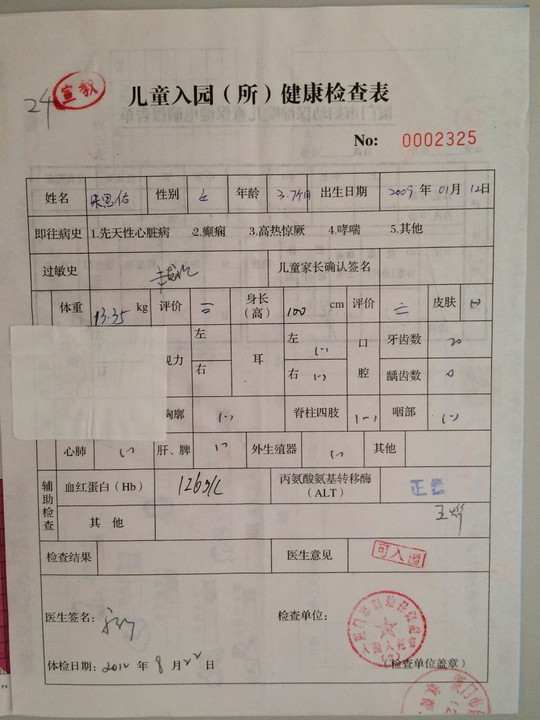 24 宣教
儿童入园（所）健康检查表
No: 0002325
姓名 性别 年龄 3.7个月 出生日期 2009 年 01 月 12 日
即往病史 1.先天性心脏病 2.癫痫 3.高热惊厥 4.哮喘 5.其他
过敏史 儿童家长确认签名
体重 13.35 kg 评价 三 身长（高） 100 cm 评价 二 皮肤 (-)
视力 左 耳 左 (-) 口腔 牙齿数 20
右 右 (-) 龋齿数 0
胸廓 (-) 脊柱四肢 (-) 咽部 (-)
心肺 (-) 肝、脾 (-) 外生殖器 (-) 其他
辅助检查 血红蛋白（Hb） 126g/L 丙氨酸氨基转移酶（ALT） 正常
其 他
检查结果 医生意见 可入园
医生签名： 检查单位：
体检日期：2012 年 8 月 22 日 （检查单位盖章）